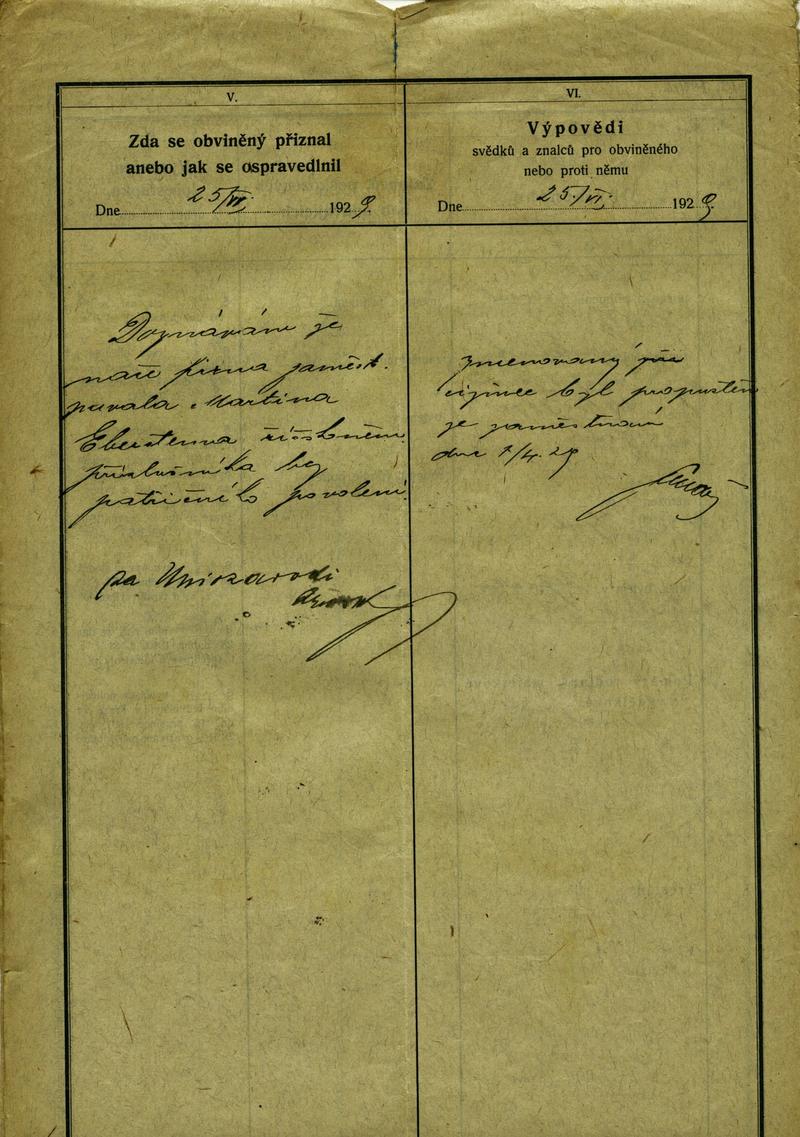 V.
Zda se obviněný přiznal
anebo jak se ospravedlnil
Dne 25/VI. 1929.
Doznávám že
naše firma zaměst.
návala Martina
říškoněm.
příslušníka bez
patřičného povolení.
za
VI.
Výpovědi
svědků a znalců pro obviněného
nebo proti němu
Dne 25/VI. 1929.
Jmenovaný jako
cizinec byl propuštěn
ze zaměstnání
dne 1/4. 29